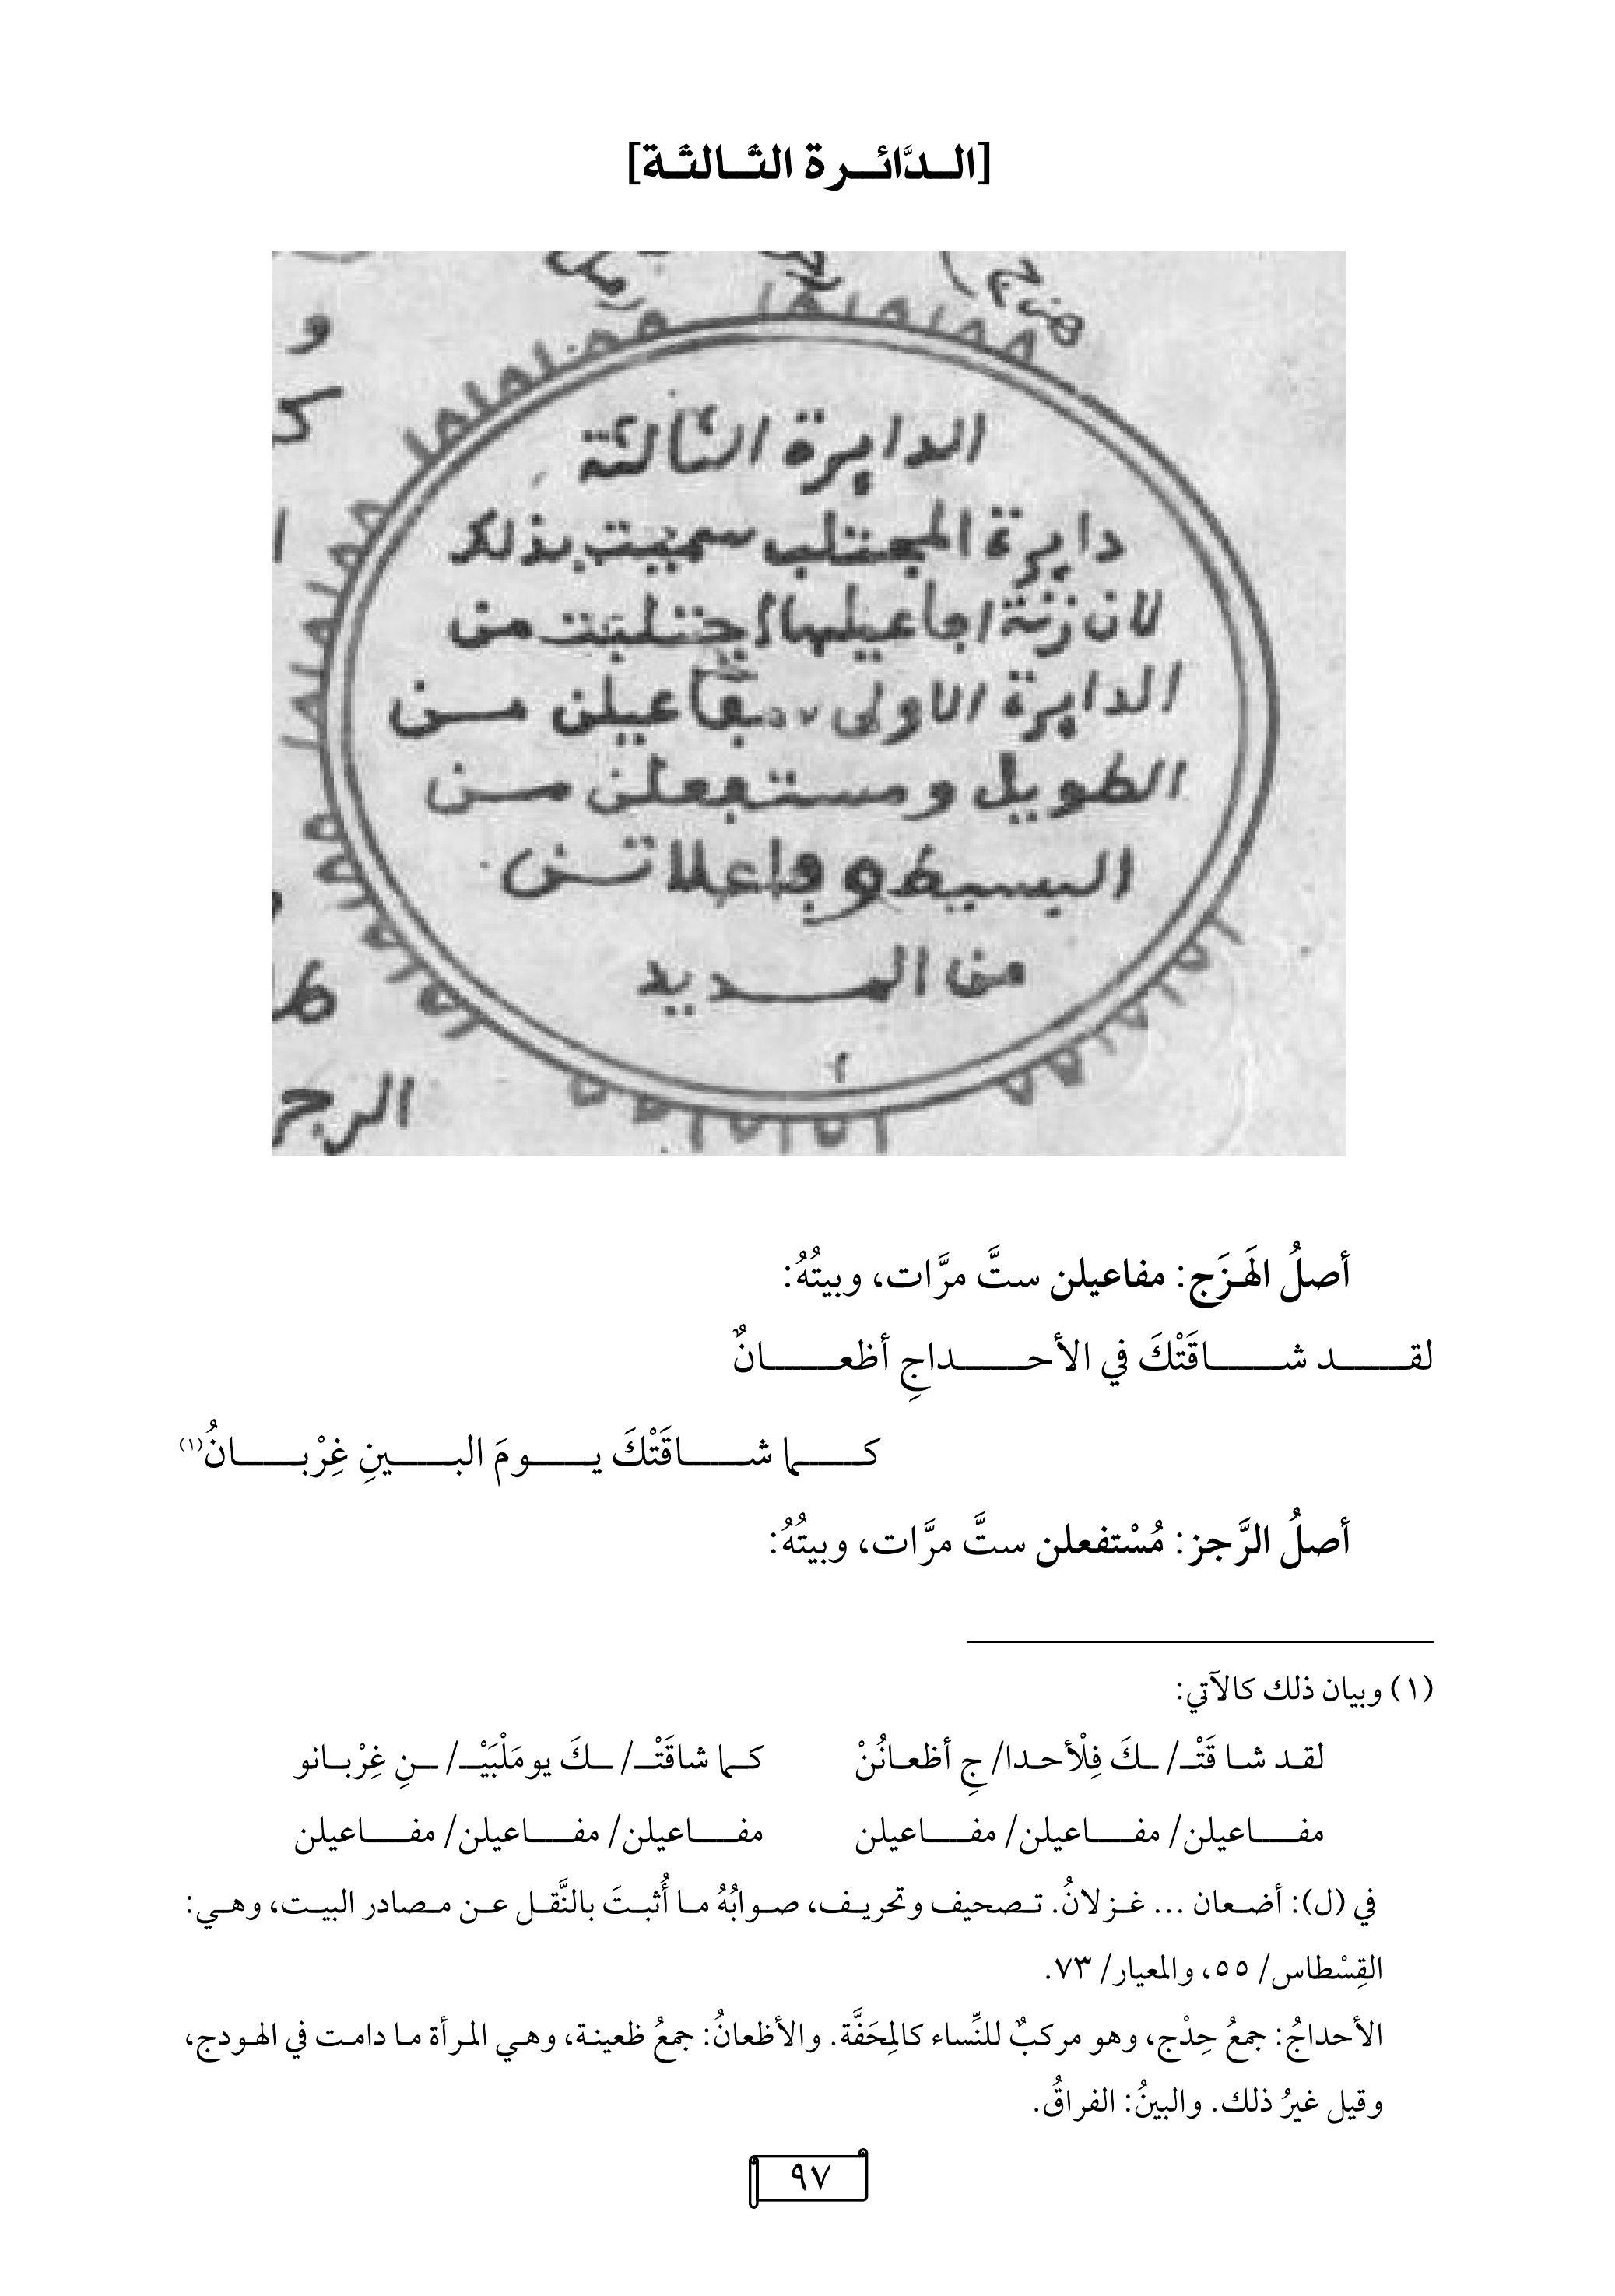 [الـدَّائـرة الثَّـالثَـة]
هزج
و
الدايرة الثالثة
دايرة المجتلب سميت بذلك
لان زنة اجاعيلها اجتلبت من
الدايرة الاولى مفاعيلن من
الطويل ومستفعلن من
البسيط وفاعلاتن
من المديد
الرجز
أصلُ الهَزَج: مفاعيلن ستَّ مرَّات، وبيتُهُ:
لقـد شـاقَتْكَ في الأحـداجِ أظعـانٌ
كـما شـاقَتْكَ يـومَ البـينِ غِرْبـانُ(١)
أصلُ الرَّجز: مُسْتفعلن ستَّ مرَّات، وبيتُهُ:
(١) وبيان ذلك كالآتي:
لقـد شـا قَتْـ/ ـكَ فِلْأحـدا/ جِ أظعـانُنْ كـما شاقَتْـ/ ـكَ يومَلْبَيْـ/ ـنِ غِرْبـانو
مفـاعيلن/ مفـاعيلن/ مفـاعيلن مفـاعيلن/ مفـاعيلن/ مفـاعيلن
في (ل): أضـعان ... غـزلانُ. تـصحيف وتحريـف، صـوابُهُ مـا أُثبـتَ بالنَّقـل عـن مـصادر البيـت، وهـي:
القِسْطاس/ ٥٥، والمعيار/ ٧٣.
الأحداجُ: جمعُ حِدْج، وهو مركبٌ للنِّساء كالمِحَفَّة. والأظعانُ: جمعُ ظعينـة، وهـي المـرأة مـا دامـت في الهـودج،
وقيل غيرُ ذلك. والبينُ: الفراقُ.
٩٧